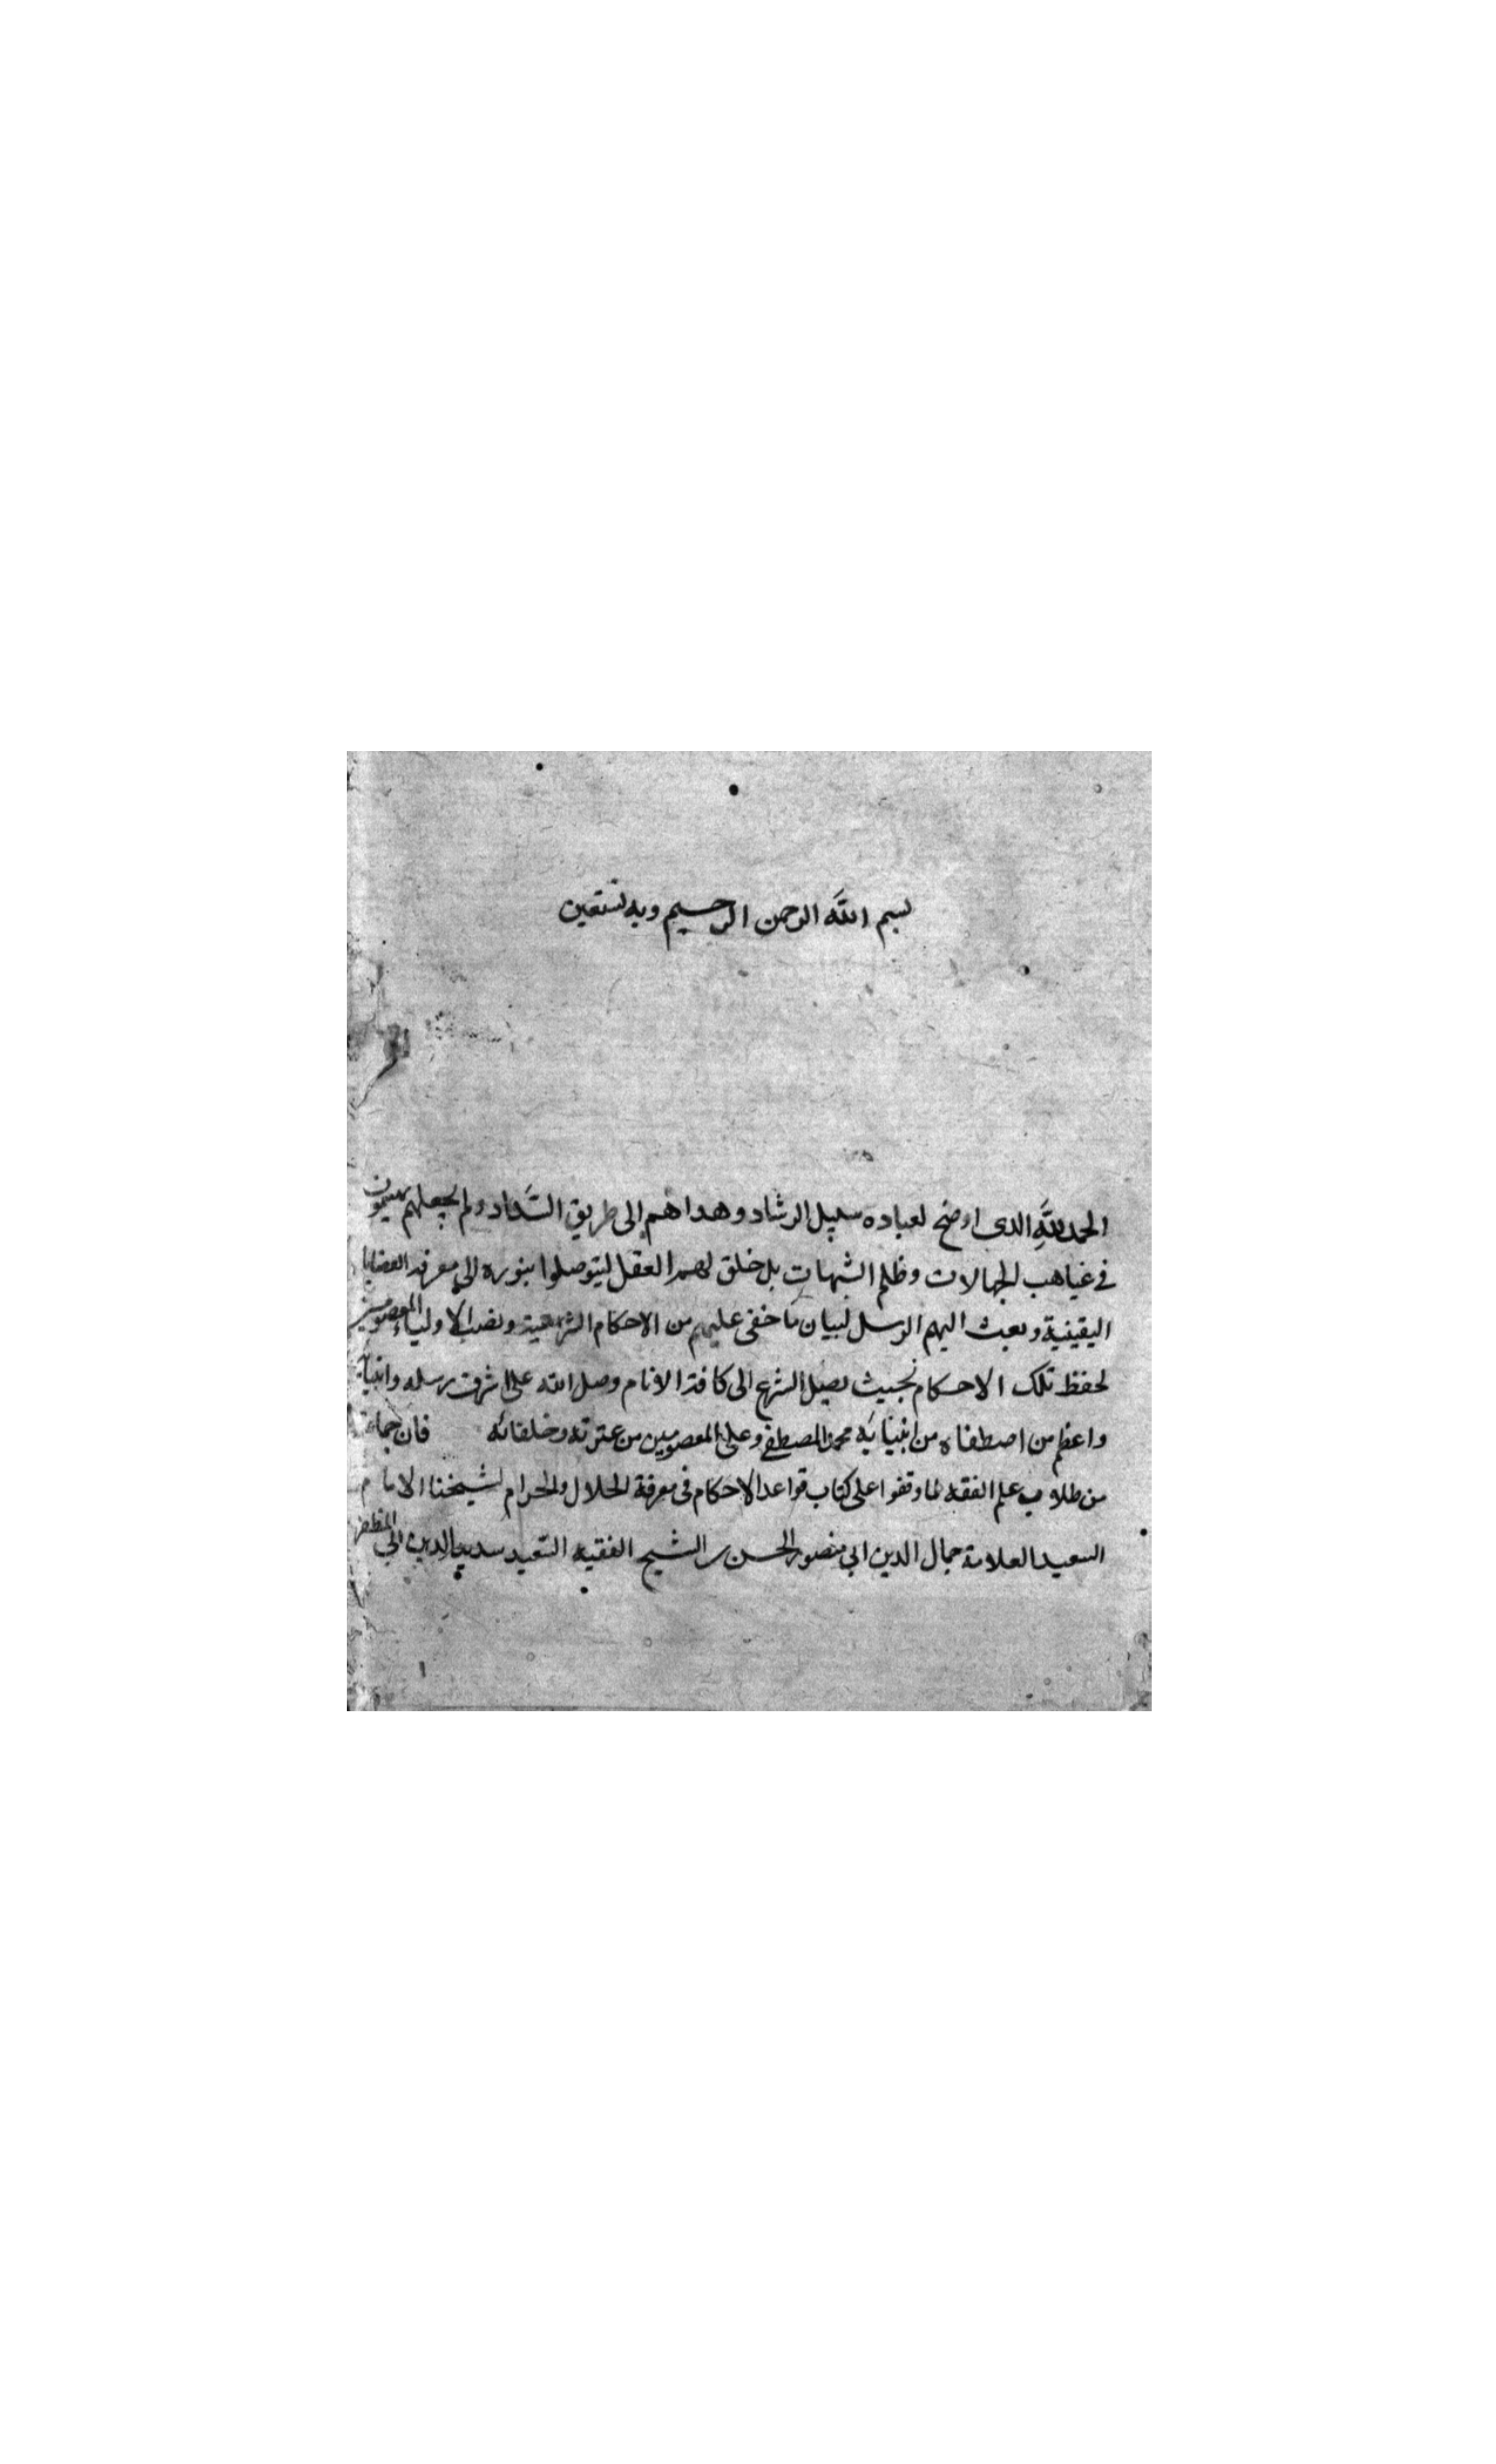 بسم الله الرحمن الرحيم وبه نستعين
الحمد لله الذي اوضح لعباده سبيل الرشاد وهداهم الى طريق السَّداد ولم يجعلهم يهيمون
في غياهب الجهالات وظلم الشبهات بل خلق لهم العقل ليتوصلوا بنوره الى معرفة القضايا
اليقينية وبعث اليهم الرسل لبيان ما خفي عليهم من الاحكام الشرعية ونصب الاولياء المعصومين
لحفظ تلك الاحكام بحيث يصل الشرع الى كافة الانام وصل الله على اشرف رسله وانبيائه
واعظم من اصطفاه من انبيائه محمد المصطفى وعلى المعصومين من عترته وخلفائه فان جماعة
من طلاب علم الفقه لما وقفوا على كتاب قواعد الاحكام في معرفة الحلال والحرام لشيخنا الامام
السعيد العلامة جمال الدين ابي منصور الحسن بن الشيخ الفقيه السَّعيد سديد الدين ابي المظفر